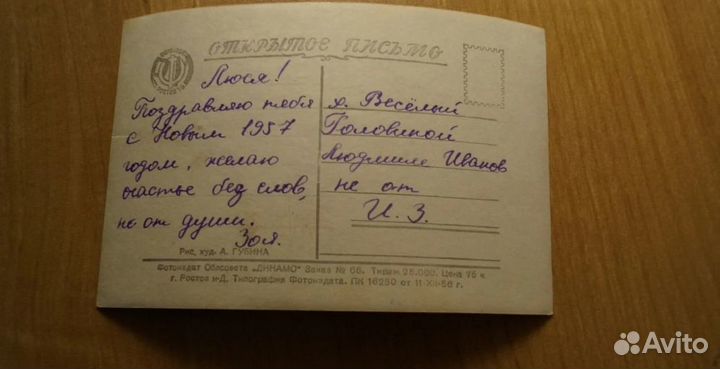 ОТКРЫТОЕ ПИСЬМО
Люся!
Поздравляю тебя
с Новым 1957
годом, желаю
счастье бед слов,
но от души.
Зоя.
х. Весёлый
Головиной
Людмиле Иванов
не от
И. З.
Рис. худ. А. ГУБИНА
Фотоиздат Облсовета „ДИНАМО" Заказ № 66. Тираж 25.000. Цена 75 к.
г. Ростов н-Д. Типография Фотоиздата. ПК 16250 от 11-XII-56 г.
Avito